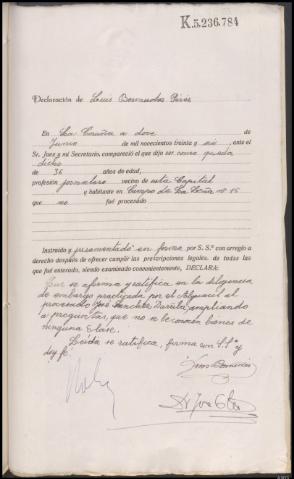 K.5.236.784
Declaración de Luis Bermudez
En La Coruña a doce de
Junio de mil novecientos treinta y seis, ante el
Sr. Juez y mi Secretario, compareció el que dijo ser como queda
dicho
de 36 años de edad,
profesión jornalero vecino de esta Capital
y habitante en Campo de La Leña nº 15
que no fué procesado
Instruido y juramentado en forma por S. Sª con arreglo a
derecho después de ofrecer cumplir las prescripciones legales, de todas las
que fué enterado, siendo examinado convenientemente, DECLARA:
Que se afirma y ratifica en la diligencia
de embargo practicada por el Alguacil al
procesado José Sanchez ampliando
a preguntas, que no se le conocen bienes de
ninguna clase.
Leida se ratifica, firma con S.Sª y
doy fé.